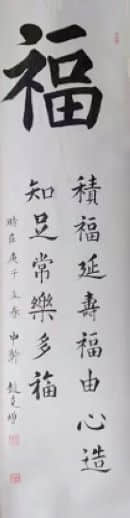 福
積福延壽福由心造
知足常樂多福
時在庚子立春中幹